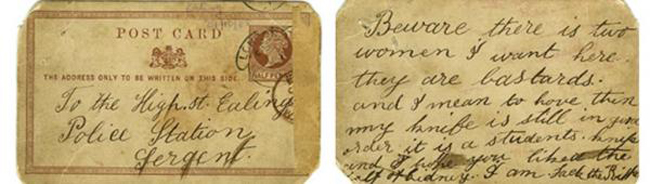 POST CARD
THE ADDRESS ONLY TO BE WRITTEN ON THIS SIDE.
HALF PENNY
To the High.st. Ealing
Police Station
Sergent.
Beware there is two
women I want here.
they are bastards.
and I mean to have them
my knife is still in good
order it is a students. knife
and I hope you liked the
half of kidney. I am Jack the Ripper